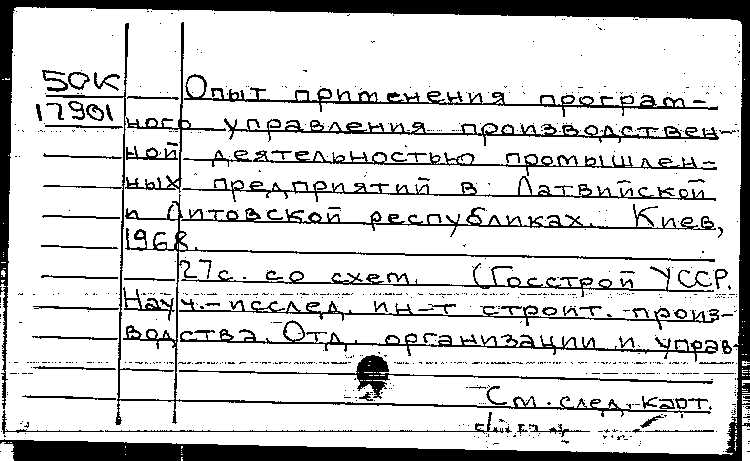 50К
17901
Опыт применения програм-
ного управления производствен-
ной деятельностью промышлен-
ных предприятий в Латвийской
и Литовской республиках. Киев,
1968.
27с. со схем. (Госстрой УССР.
Науч.-исслед. ин-т строит. произ-
водства. Отд. организации и управ-
См. след. карт.